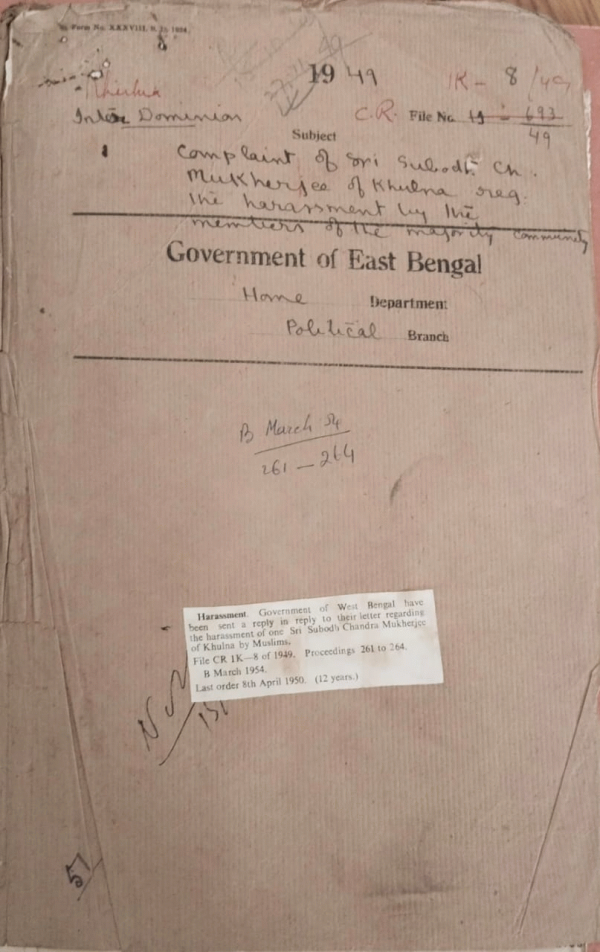 Form No. XXXVIII.
1949
1K - 8/49
Inter Dominion
C.R. File No. 693
49
Subject
1 Complaint of Sri Subodh Ch.
Mukherjee of Khulna reg.
the harassment by the
members of the majority community
Government of East Bengal
Home Department
Political Branch
B March 54
261 — 264
Harassment. Government of West Bengal have
been sent a reply in reply to their letter regarding
the harassment of one Sri Subodh Chandra Mukherjee
of Khulna by Muslims.
File CR 1K—8 of 1949. Proceedings 261 to 264.
B March 1954.
Last order 8th April 1950. (12 years.)
57